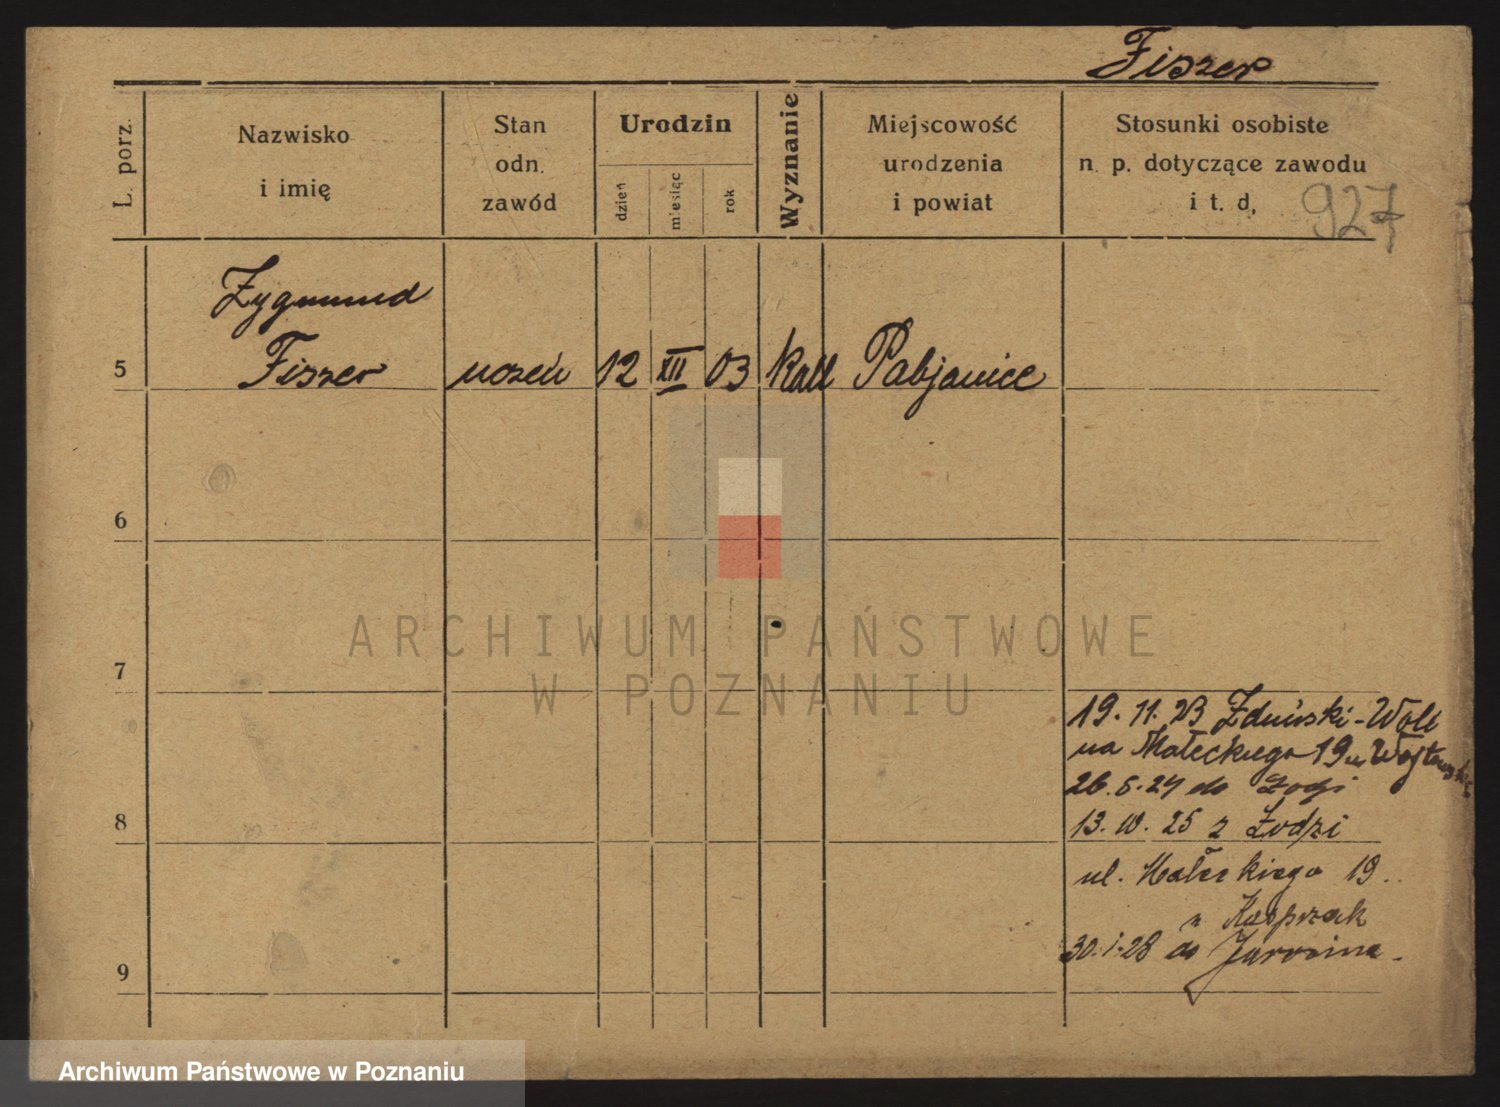 Fiszer
L. porz.
Nazwisko
i imię
Stan
odn.
zawód
Urodzin
dzień
miesiąc
rok
Wyznanie
Miejscowość
urodzenia
i powiat
Stosunki osobiste
n. p. dotyczące zawodu
i t. d,
927
Zygmund
5 Fiszer uczeń 12 XII 03 Pabjanice
6
7
8
9
19. 11. 23 Zduński-Woli
na Małeckiego 19 u
26. 5. 24 do Łodzi
13. 10. 25 z Łodzi
ul. Małeckiego 19.
u Kasprzak
30. 1. 28 do Jarocina.
ARCHIWUM PAŃSTWOWE
W POZNANIU
Archiwum Państwowe w Poznaniu